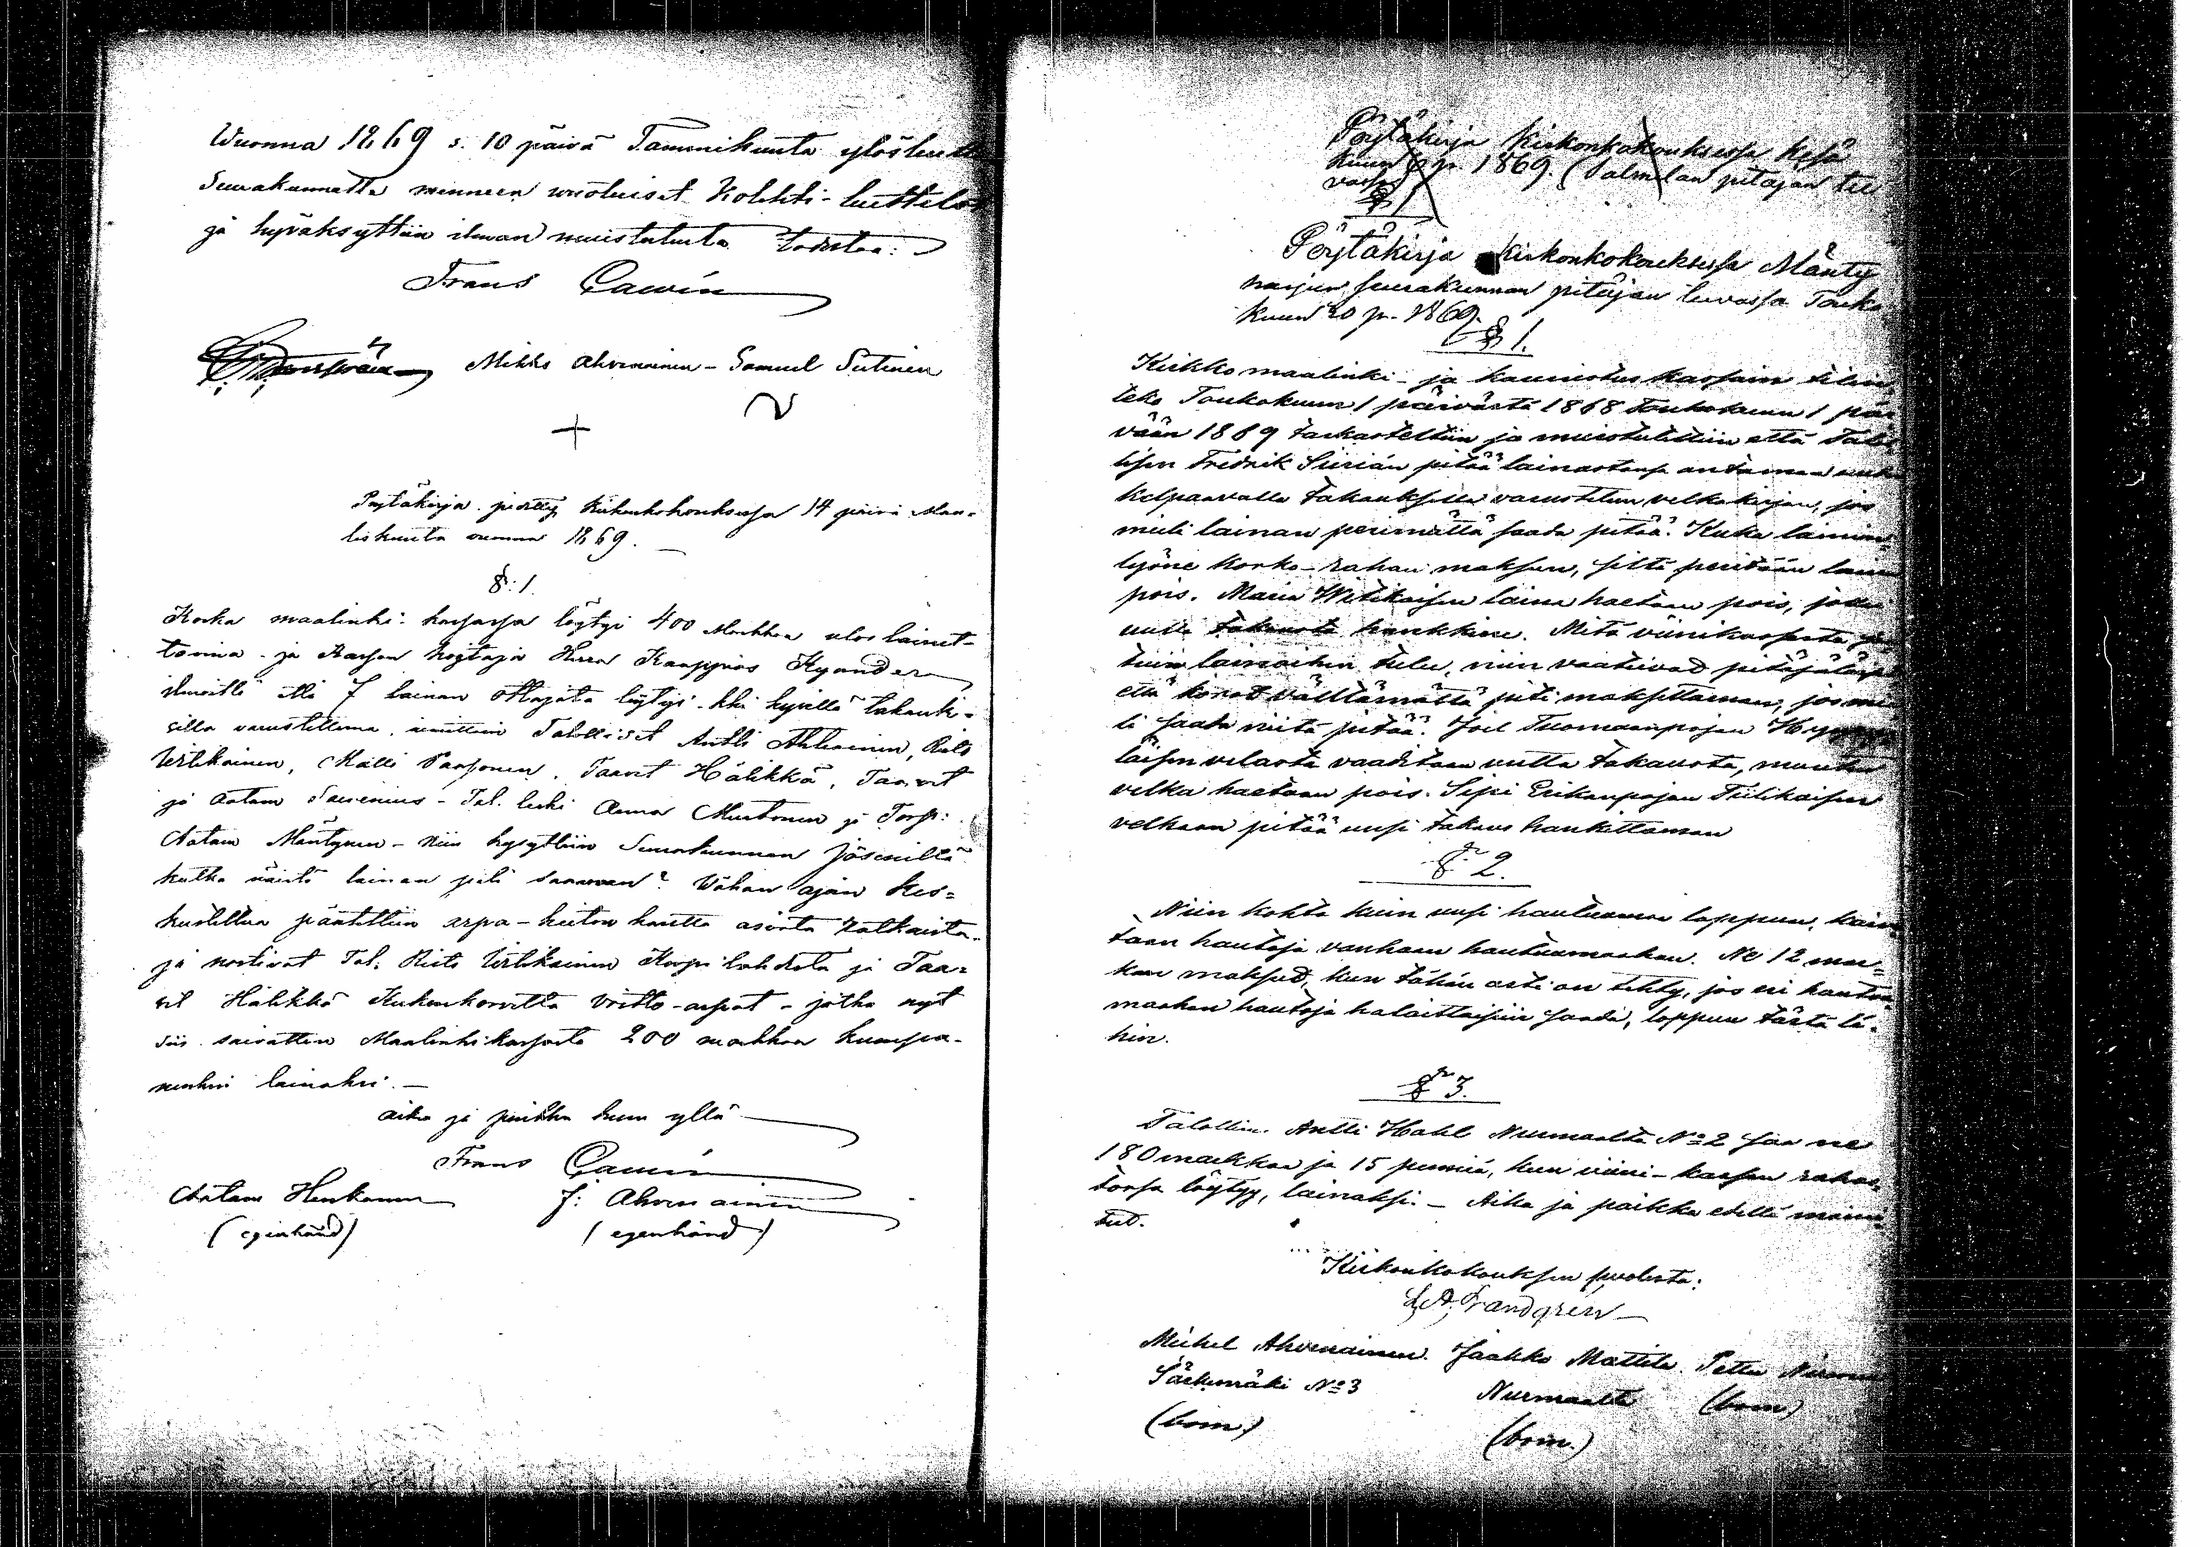 Wuonna 1869 s. 10 päivä Tammikuuta ylösluet
Seurakunnalle menneen vuotuiset Kolehti-luettelot
ja hyväksyttiin ilman muistutusta todistaa:
Frans
Mikko Ahvenainen - Samuel Sutinen
Pöytäkirja pidetty Kirkonkokouksessa 14 päivä Maa-
liskuuta vuonna 1869.
§: 1.
Koska maalinki-kassassa löytyi 400 Markkaa ulos lainat-
tavina - ja Kassan hoitaja Herra Kauppias Kyander
ilmoitti että 7 lainan ottajata löytyi - kki hyvillä takauk-
silla varustettuna, nimittäin Talolliset Antti Ahvenainen, Risto
Witikainen, Matti Paasonen, Taavit Hälikkä, Taavit
ja Aatam Savenius - Tal. leski Anna Mustonen ja Torp:
Aatam Mäntynen - niin kysyttiin Seurakunnan jäseniltä
kutka näistä lainan piti saaman? Wähän ajan kes-
kusteltua päätettiin arpa-heiton kautta asiata ratkaista
ja nostivat Tal: Risto Witikainen Korpilahdesta ja Taa-
vit Hälikkä Kukonkorvelta voitto-arpat - jotka nyt
siis saivattin Maalinki-kassasta 200 markkaa kumpa-
nenkin lainaksi. -
aika ja paikka kuin yllä
Frans
Aatam Henkonen J: Ahvenainen
(egenhänd) (egenhänd)
Pöytäkirja Kirkonkokouksessa Kesä
kuun 6 p. 1869. (Salmelan pitäjän tu
vassa
§ 1
Pöytäkirja Kirkonkokouksessa Mänty
harjun seurakunnan pitäjän tuvassa Touko
kuun 20 p. 1869.
§ 1.
Kirkko maalinki- ja kaunistus kassain tilin
teko Toukokuun 1 päivästä 1868 toukokuun 1 päi
vään 1869 tarkasteltiin ja muistutettiin että Talol
lisen Fredrik Siiriän pitää lainastansa antaman uude
kelpaavalla takauksella varustetun velkakirjan, jos
mieli lainan perimättä saada pitää. Kuka laimin
lyöne korko-rahan maksun, siltä peritään laina
pois. Maria Witikaisen laina haetaan pois, jollei
uutta takausta hankkine. Mitä viinikassasta
tuin lainoihin tulee, niin vaativat pitäjäläiset
että korot välttämättä piti maksettaman, jos mie
li saada niitä pitää. Joel Tuomaanpojan
läisen velasta vaaditaan uutta takausta, muuten
velka haetaan pois. Sipi Erikanpojan Tiilikaisen
velkaan pitää uusi takaus hankittaman
§ 2.
Niin kohta kuin uusi hautuumaa loppuu, kaive
taan hautoja vanhaan hautuumaahan. Ne 12 mar-
kan maksut, kun tähän asti on tehty, jos eri hautuu
maahan hautoja halaistaisiin saada, loppuu tästä lä-
hin.
§ 3.
Talollin. Antti Hahl Nurmaalta No 2 saa ne
180 markkaa ja 15 penniä, kun viini-kassan rahas
tossa löytyy, lainaksi. - Aika ja paikka edellä maini
tut.
Kirkonkokouksen puolesta:
Michel Ahvenainen. Jaakko Mattila. Petter
Särkemäki No 3 Nurmaalta (bom.)
(bom.) (bom.)